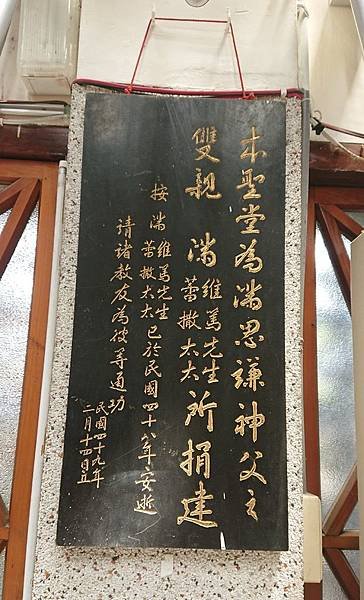 本聖堂為滿思謙神父之
雙親 滿維篤先生
蕾撒太太所捐建
按滿維篤先生
蕾撒太太已於民國四十八年安逝
請諸教友為彼等通功
民國四十九年
二月十四日立